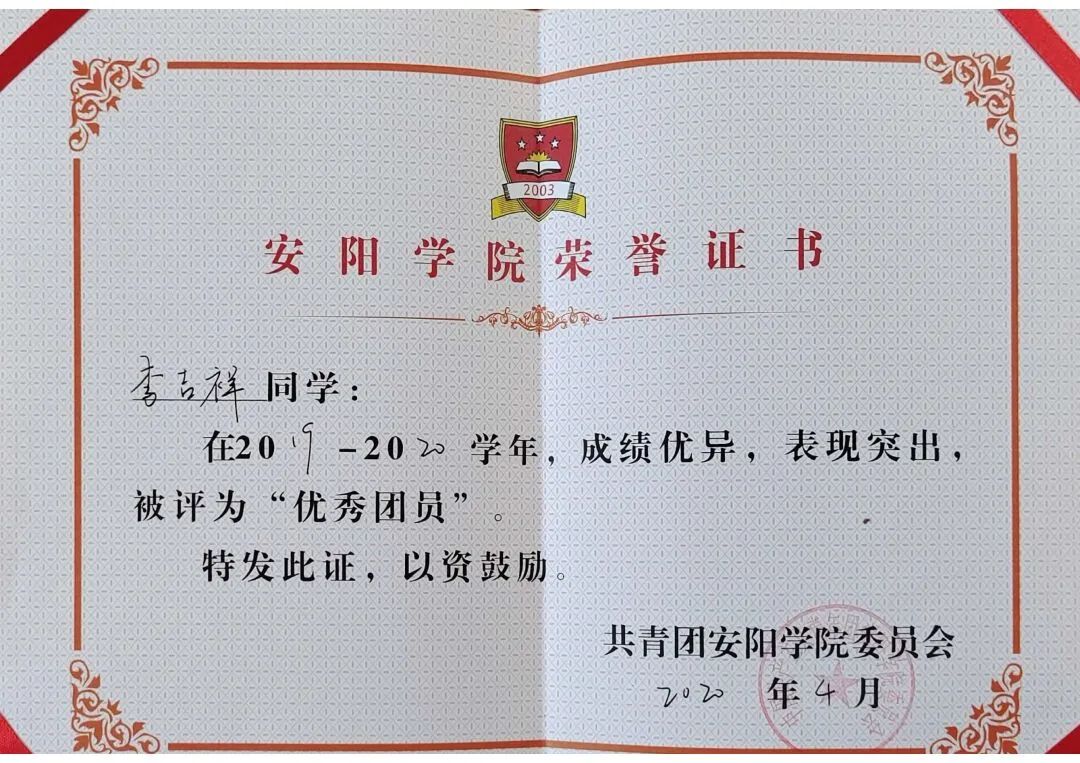 2003
安阳学院荣誉证书
李吉祥同学：
在2019-2020学年，成绩优异，表现突出，
被评为“优秀团员”。
特发此证，以资鼓励。
共青团安阳学院委员会
2020年4月